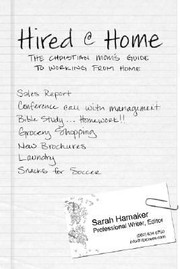 Hired @ Home
THE CHRISTIAN MOM'S GUIDE
TO WORKING FROM HOME
Sales Report
Conference call with management
Bible Study... Homework!!
Grocery Shopping
New Brochures
Laundry
Snacks for Soccer
Sarah Hamaker
Professional Writer, Editor